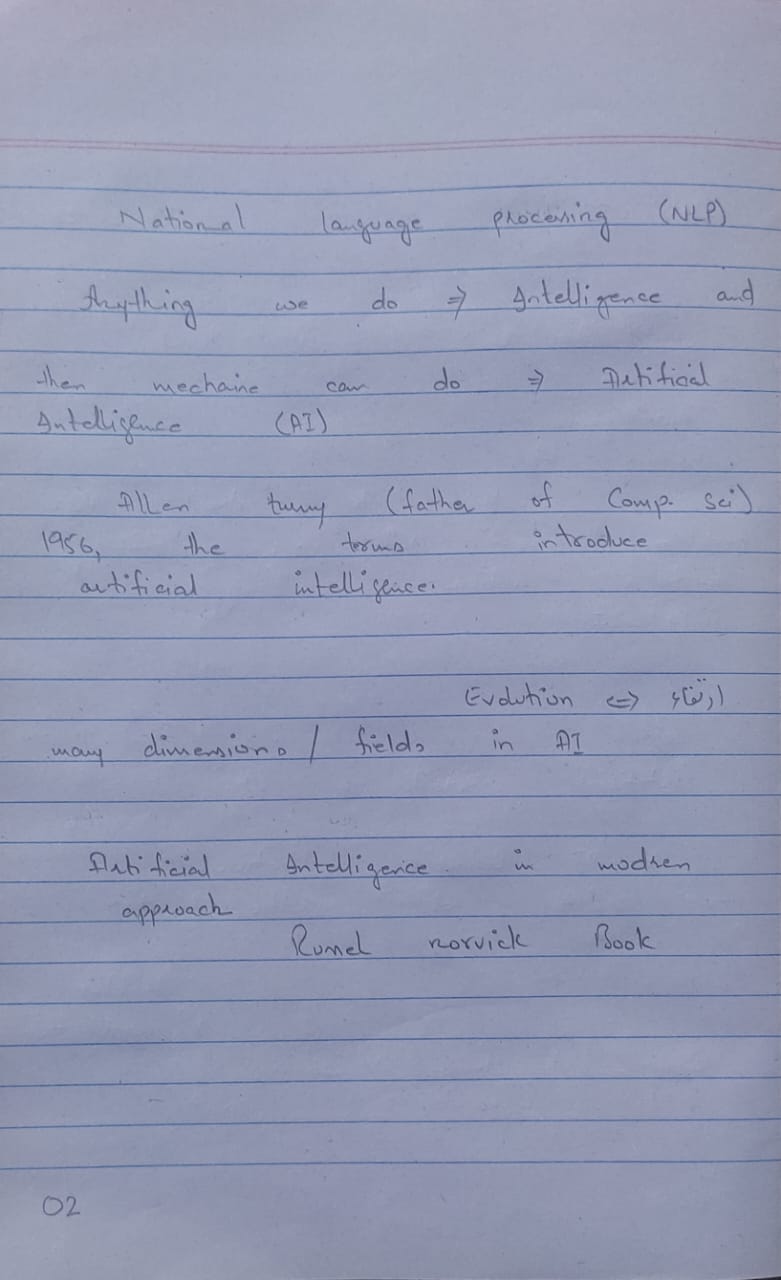 National language processing (NLP)
Anything we do ⇒ Intelligence and
then mechaine can do ⇒ Artificial
Intelligence (AI)
Allen turny (father of Comp. Sci)
1956, the terms introduce
artificial intelligence.
Evolution ⇔ ارتقاء
many dimensions / fields in AI
Artificial Intelligence in modren
approach
Russel norvick Book
02